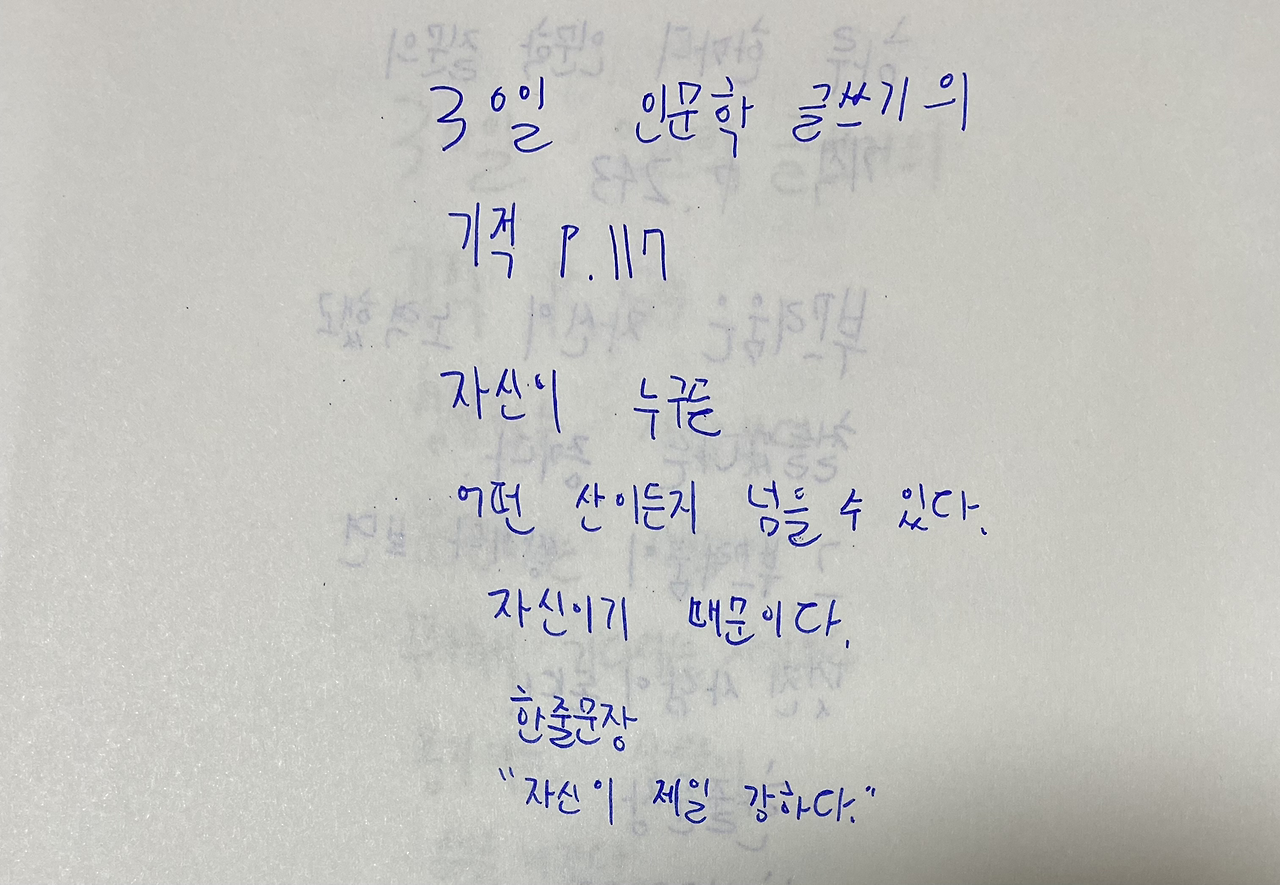 30일 인문학 글쓰기의
기적 P.117
자신이 누구든
어떤 산이든지 넘을 수 있다.
자신이기 때문이다.
한줄문장
"자신이 제일 강하다."